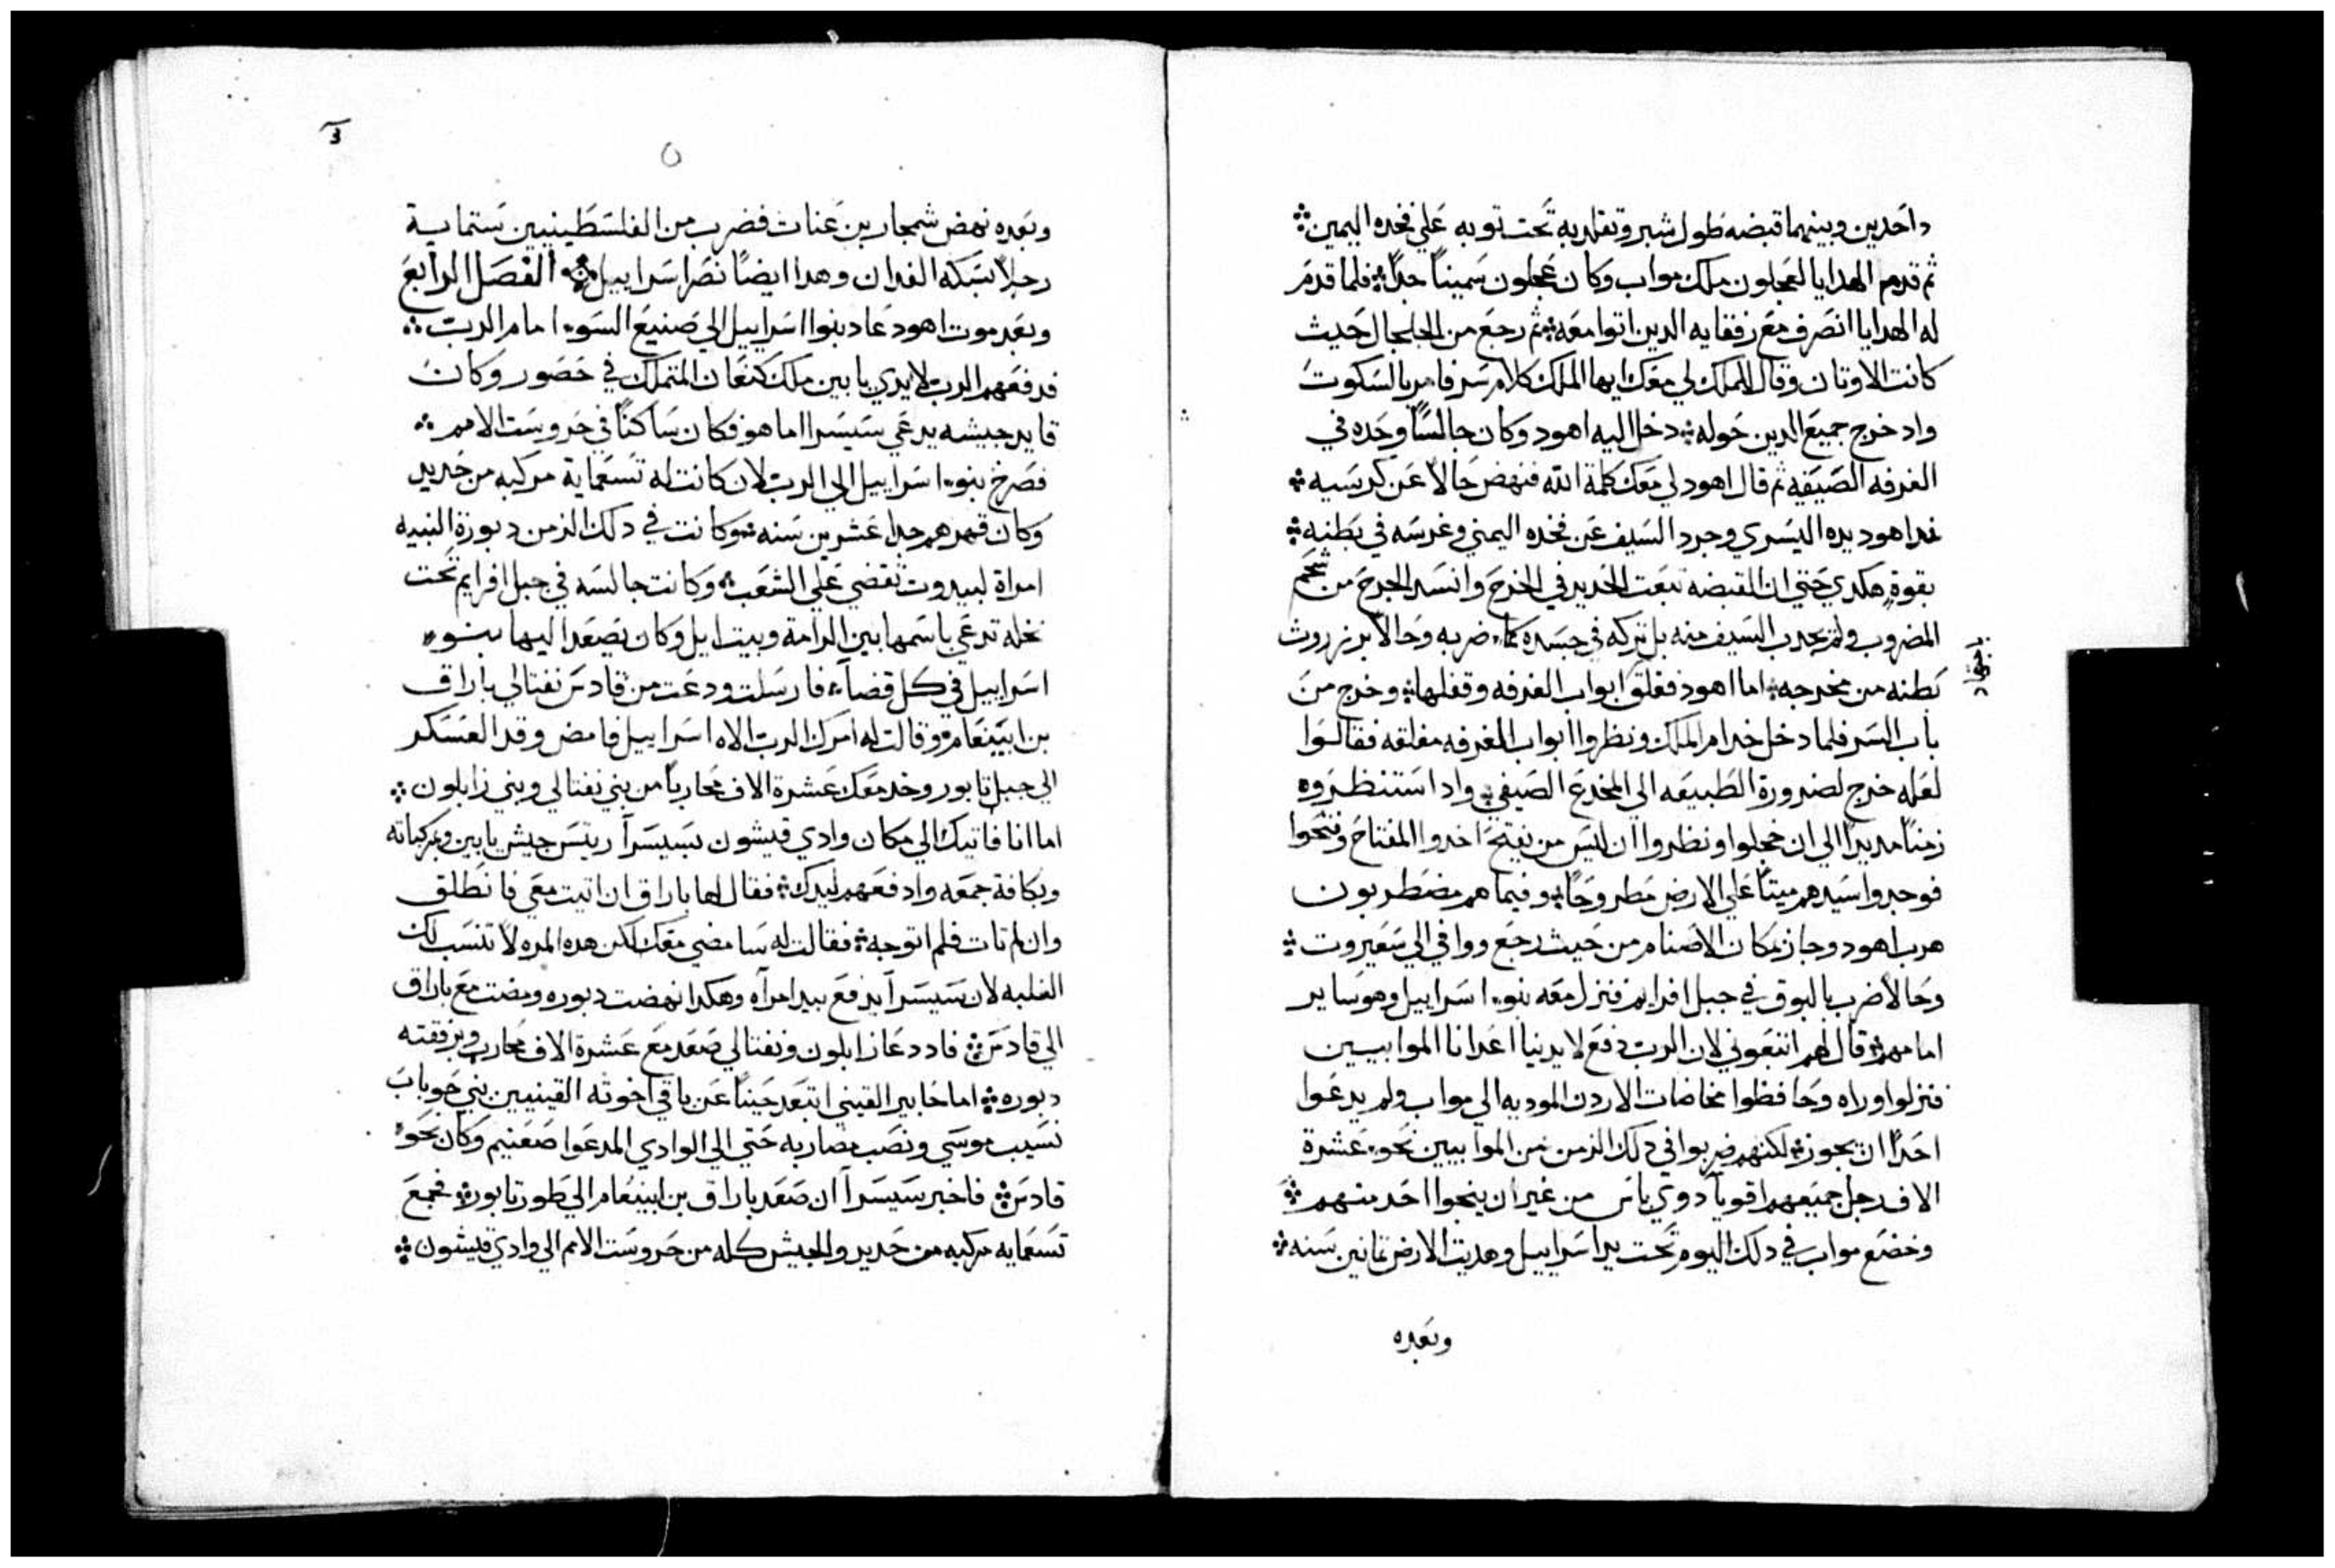 داحدين وبينهما قبضه طول شبر وتقلد به تحت توبه علي فخده اليمين
ثم قدم الهدايا لعجلون ملك مواب وكان عجلون سميناً جداً فلما قدم
له الهدايا انصرف مع رفقايه الدين اتوا معه ثم رجع من الجلجال حيث
كانت الاوتان وقال للملك لي معك ايها الملك كلام سر فامر بالسكوت
واد خرج جميع الدين حوله دخل اليه اهود وكان جالساً وحده في
الغرفه الصيفيه ثم قال اهود لي معك كلمة الله فنهض حالا عن كرسيه
فمد اهود يده اليسري وجرد السيف عن فخده اليمني وغرسه في بطنه
بقوة هكدي حتي ان القبضه تبعت الحديد في الجرح وانسد الجرح من شحم
المضروب ولم يجدب السيف منه بل تركه في جسده كما ضربه وحالا برز روث
بطنه من مخرجه اما اهود فغلق ابواب الغرفه وقفلها وخرج من
باب السر فلما دخل خدام الملك ونظروا ابواب الغرفه مغلقه فقالوا
لعله خرج لضرورة الطبيعه الي المخدع الصيفي واد استنظروه
زمناً مديداً الي ان خجلوا ونظروا ان ليس من يفتح اخدوا المفتاح وفتحوا
فوجدوا سيدهم ميتاً علي الارض مطروحاً وفيما هم مضطربون
هرب اهود وجاز مكان الاصنام من حيث رجع ووافي الي سعيروت
وحالا ضرب بالبوق في جبل افرايم فنزل معه بنو اسراييل وهو ساير
امامهم قال لهم اتبعوني لان الرب دفع لايدينا اعدانا الموابيين
فنزلوا وراه وحافظوا مخاضات الاردن الموديه الي مواب ولم يدعوا
احداً ان يجوز لكنهم ضربوا في دلك الزمن من الموابيين نحو عشرة
الاف رجل جميعهم اقويآ دوي باس من غير ان ينجوا احد منهم
وخضع مواب في دلك اليوم تحت يد اسراييل وهديت الارض تمانين سنه
وبعده
وبعده نهض شمجار بن عنات فضرب من الفلسطينيين ستماية
رجلا بسكه الفدان وهدا ايضاً نصر اسراييل الفصل الرابع
وبعد موت اهود عاد بنوا اسراييل الي صنيع السوء امام الرب
فدفعهم الرب لايدي يابين ملك كنعان المتملك في حصور وكان
قايد جيشه يدعي سيسرا اما هو فكان ساكناً في حروست الامم
فصرخ بنو اسراييل الي الرب لان كانت له تسعماية مركبه من حديد
وكان قهرهم جدا عشرين سنه وكانت في دلك الزمن دبورة النبيه
امراة لبيدوت تقضي علي الشعب وكانت جالسه في جبل افرايم تحت
نخله تدعي باسمها بين الرامة وبيت ايل وكان يصعد اليها بنو
اسراييل في كل قضآ فارسلت ودعت من قادس نفتالي باراق
بن ابينعام وقالت له امرك الرب الاه اسراييل فامض وقد العسكر
الي جبل تابور وخد معك عشرة الاف محارباً من بني نفتالي وبني زابلون
اما انا فاتيك الي مكان وادي قيشون بسيسرآ ريس جيش يابين ومركباته
وبكافة جمعه وادفعهم ليدك فقال لها باراق ان اتيت معي فانطلق
وان لم تات فلم اتوجه فقالت له سامضي معك لكن هده المره لا تنسب لك
الغلبه لان سيسرآ يدفع بيد امرآه وهكدا نهضت دبوره ومضت مع باراق
الي قادس فاد دعا زابلون ونفتالي صعد مع عشرة الاف محارب وبرفقته
دبوره اما حابير القيني ابتعد حيناً عن باقي اخوته القينيين بني حوباب
نسيب موسي ونصب مضاربه حتي الي الوادي المدعوا صعنيم وكان نحو
قادس فاخبر سيسرآ ان صعد باراق بن ابينعام الي طور تابور فجمع
تسعمايه مركبه من حديد والجيش كله من حروست الامم الي وادي قيشون